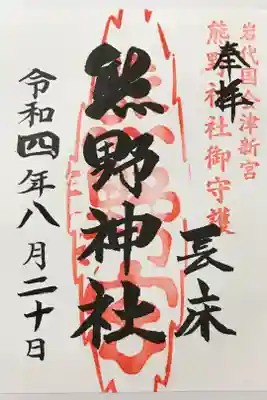 岩代国会津新宮
熊野神社御守護
奉拝
長床
熊野神社
令和四年八月二十日